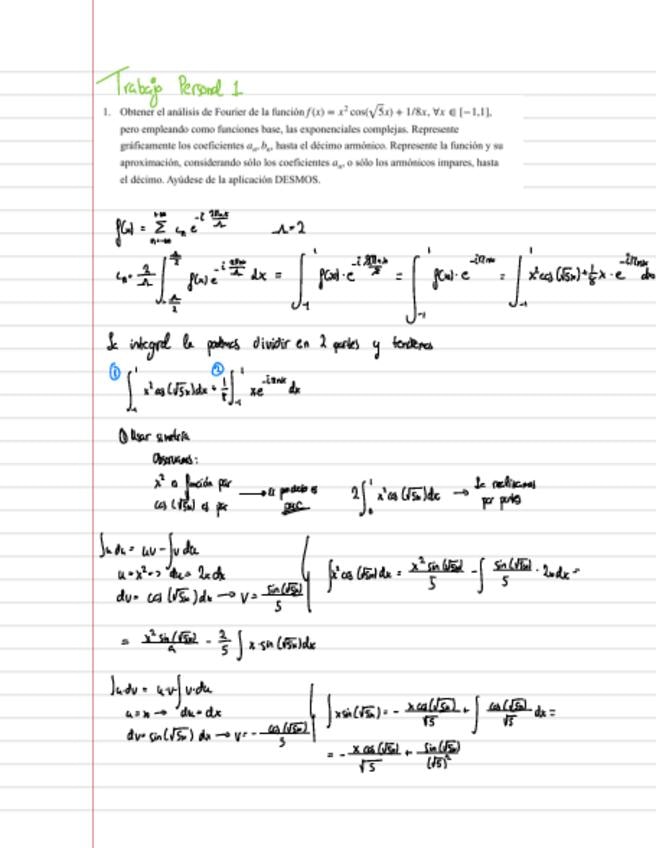 Trabajo Personal 1
1. Obtener el análisis de Fourier de la función f(x) = x² cos(√5x) + 1/8x, ∀x ∈ [−1,1],
pero empleando como funciones base, las exponenciales complejas. Represente
gráficamente los coeficientes aₙ, bₙ, hasta el décimo armónico. Represente la función y su
aproximación, considerando sólo los coeficientes aₙ, o sólo los armónicos impares, hasta
el décimo. Ayúdese de la aplicación DESMOS.
f(x) = Σ cₙ e
= 2
f(x) e dx = ∫ f(x) · e = ∫ f(x) · e = ∫ x² cos(√5x) + 1/8 x · e dx
integral la podemos dividir en 2 partes y tendremos
① ②
∫ x² cos(√5x) dx + 1/8 ∫ x e dx
① Usar simetría
Observamos:
x² función par
cos(√5x) es par → par
2∫ x² cos(√5x) dx → por partes
∫u dv = uv − ∫v du
u = x² → du = 2x dx
dv = cos(√5x) dx → v = sin(√5x)/5
∫x² cos(√5x) dx = x² sin(√5x)/5 − ∫ sin(√5x)/5 · 2x dx =
= x² sin(√5x) − 2/5 ∫ x · sin(√5x) dx
∫u dv = uv ∫v · du
u = x → du = dx
dv = sin(√5x) dx → v = − cos(√5x)/5
∫x sin(√5x) = − x cos(√5x)/√5 + ∫ cos(√5x)/√5 dx =
= − x cos(√5x)/√5 + sin(√5x)/(√5)²